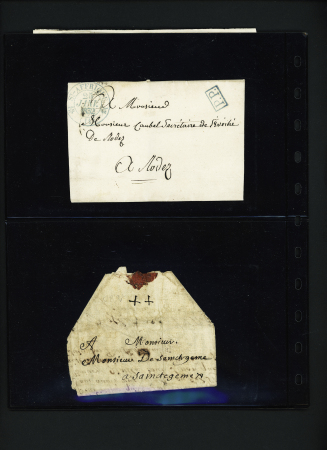 P.P.
A Monsieur
Monsieur Caubel Secrétaire de l'évêché
De Rodez
A Rodez
A Monsieur.
Monsieur De Saintegeme
a Saintegeme